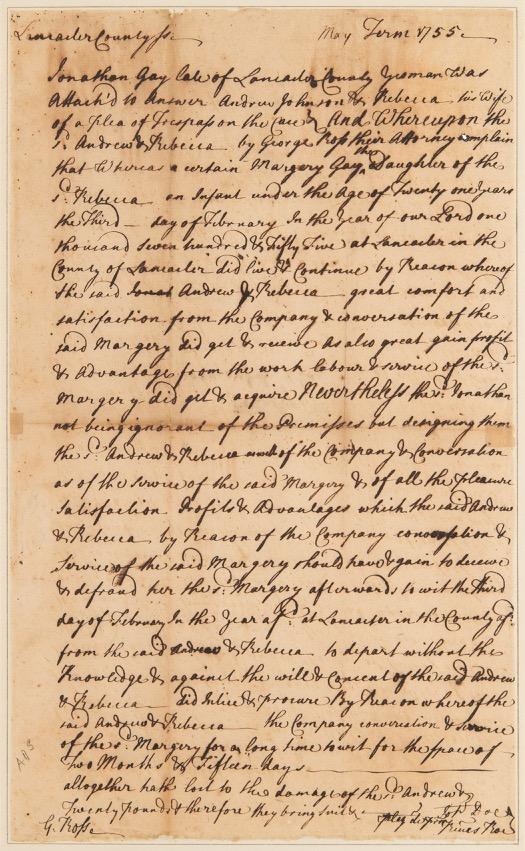 Lancaster County ss.
May Term 1755.
Jonathan Gay late of Lancaster County Yeoman was
Attach'd to Answer Andrew Johnson & Rebecca his Wife
of a Plea of Trespass on the Case & And Whereupon the
sd. Andrew & Rebecca by George Ross their Attorney complain
that Whereas a certain Margery Gay the Daughter of the
sd. Rebecca an Infant under the Age of Twenty one Years
the Third day of February In the Year of our Lord one
thousand Seven hundred & fifty Five at Lancaster in the
County of Lancaster did live & Continue by Reason whereof
the said Andrew & Rebecca great comfort and
satisfaction from the Company & conversation of the
said Margery did get & receive As also great gain profit
& Advantage from the work labour & service of the sd.
Margery did git & acquire Nevertheless the sd. Jonathan
not being ignorant of the Premisses but designing them
the sd. Andrew & Rebecca of the Company & Conversation
as of the Service of the said Margery & of all the Pleasure
Satisfaction Profits & Advantages which the said Andrew
& Rebecca by Reason of the Company conversation &
Service of the said Margery should have & gain to deceive
& defraud her the sd. Margery afterwards to wit the Third
day of February In the Year afsd. at Lancaster in the County afsd.
from the said Andrew & Rebecca to depart without the
Knowledge & against the will & Consent of the said Andrew
& Rebecca did Intice & procure By Reason whereof the
said Andrew & Rebecca the Company conversation & Service
of the sd. Margery for a long time to wit for the space of
Two Months & Fifteen days
altogether hath lost to the damage of the sd. Andrew &
Twenty pounds & therefore they bring suit &c.
G. Ross
Jno. Doe
Richd. Roe